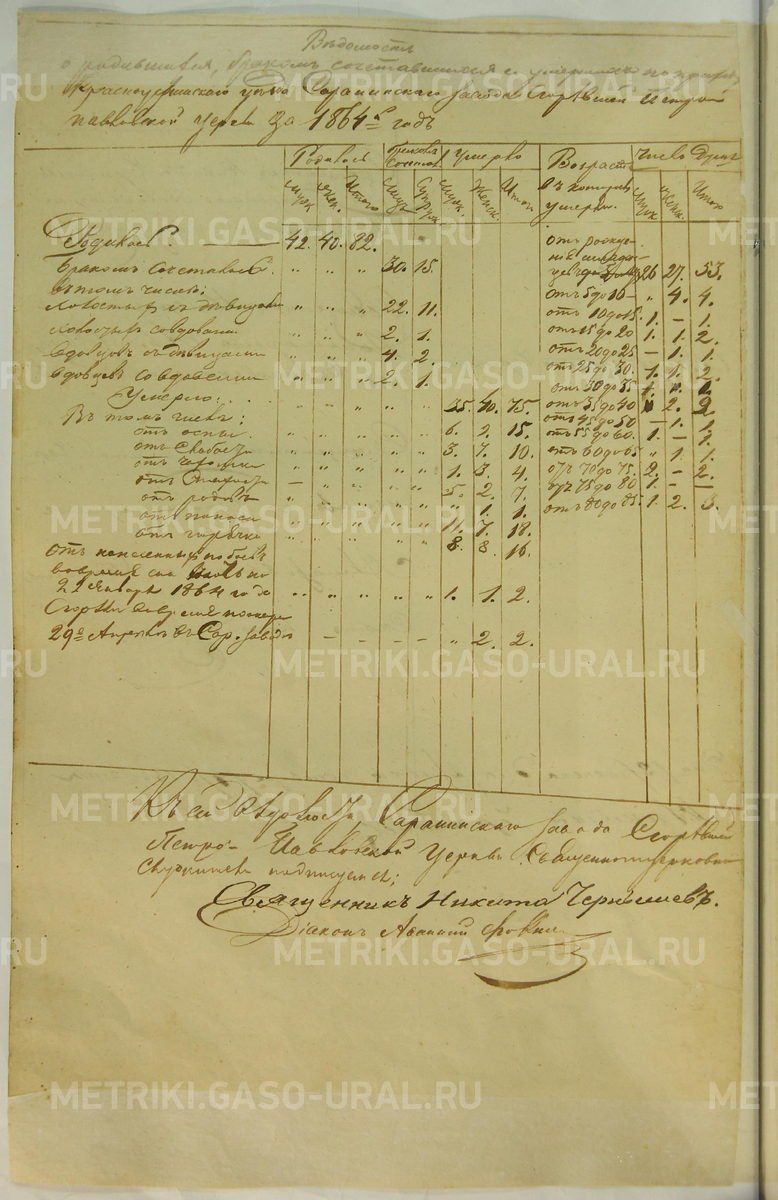 Вѣдомость
о родившихся, бракомъ сочетавшихся и умершихъ по приходу
Красноуфимскаго уѣзда Саранинскаго завода Сгорѣвшей Петро
павловской церкви За 1864й годъ
Родилось Бракомъ Сочетал. Умерло Возрастъ въ которомъ умерли Число Душъ
муж. Жен. Итого Муж. Супруж. Муж. Женск. Итого Муж. Женск. Итого
Родилось. 42. 40. 82.
отъ рожде
нія младен
цевъ до 5 26 27. 53.
Бракомъ Сочеталось. „ „ „ 30. 15.
въ томъ числѣ:
отъ 5 до 10 „ 4. 4.
Холостыхъ съ дѣвицами „ „ „ 22. 11.
отъ 10 до 15. 1. – 1.
Холостыхъ со вдовами „ „ „ 2. 1.
отъ 15 до 20 1. 1. 2.
Вдовцовъ съ дѣвицами „ „ „ 4. 2.
отъ 20 до 25 – 1. 1.
Вдовцевъ со вдовами „ „ „ 2. 1.
отъ 25 до 30. 1. 1. 2.
Умерло: „ „ „ „ „ 35. 40. 75.
отъ 30 до 35 1. „ 1.
отъ 35 до 40 „ 2. 2.
Въ томъ числѣ:
отъ 45 до 50 – 1. 1.
отъ оспы „ „ „ „ „ 6. 2. 15.
отъ 55 до 60. 1. – 1.
отъ Слабости „ „ „ „ „ 3. 7. 10.
отъ 60 до 65 „ 1. 1.
отъ „ „ „ „ „ 1. 3. 4.
отъ 70 до 75. 2. – 2.
отъ – „ „ „ „ 5. 2. 7.
отъ 75 до 80 1. – –
отъ родовъ „ „ „ „ „ „ 1. 1.
отъ 80 до 85. 1. 2. 3.
отъ поноса „ „ „ „ „ 11. 7. 18.
отъ горячки „ „ „ „ „ 8. 8. 16.
отъ нанесенныхъ побоевъ
во время сна
22 Января 1864 года „ „ „ „ „ 1. 1. 2.
Сгорѣли во время пожара
29го Апрѣля въ Сар. заводѣ – – – – „ 2. 2.
Къ сей вѣдомости Саранинскаго завода Сгорѣвшей
Петро-Павловской Церкви Священноцерковно
служители подписуемся;
Священникъ Никита Чернышевъ.
Діаконъ
METRIKI.GASO-URAL.RU